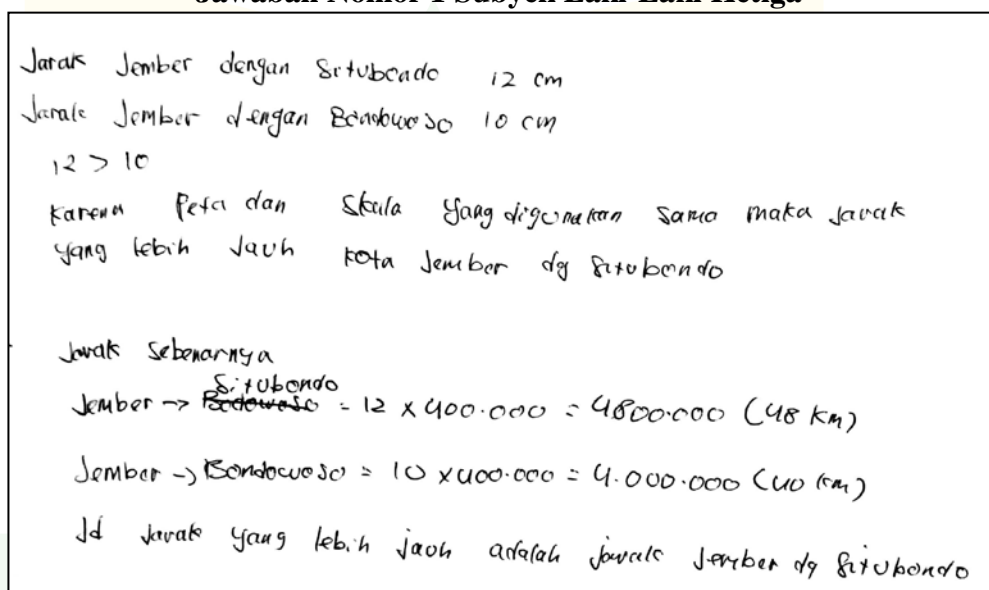 Jawaban Nomor 1 Subyek Laki-Laki Ketiga
Jarak Jember dengan Situbondo 12 cm
Jarak Jember dengan Bondowoso 10 cm
12 > 10
Karena Peta dan Skala yang digunakan sama maka jarak
yang lebih Jauh kota Jember dg Situbondo
Jarak Sebenarnya
Situbondo
Jember → Bodowoso = 12 x 400.000 = 4800.000 (48 Km)
Jember → Bondowoso = 10 x 400.000 = 4.000.000 (40 km)
Jd Jarak yang lebih jauh adalah jarak Jember dg Situbondo